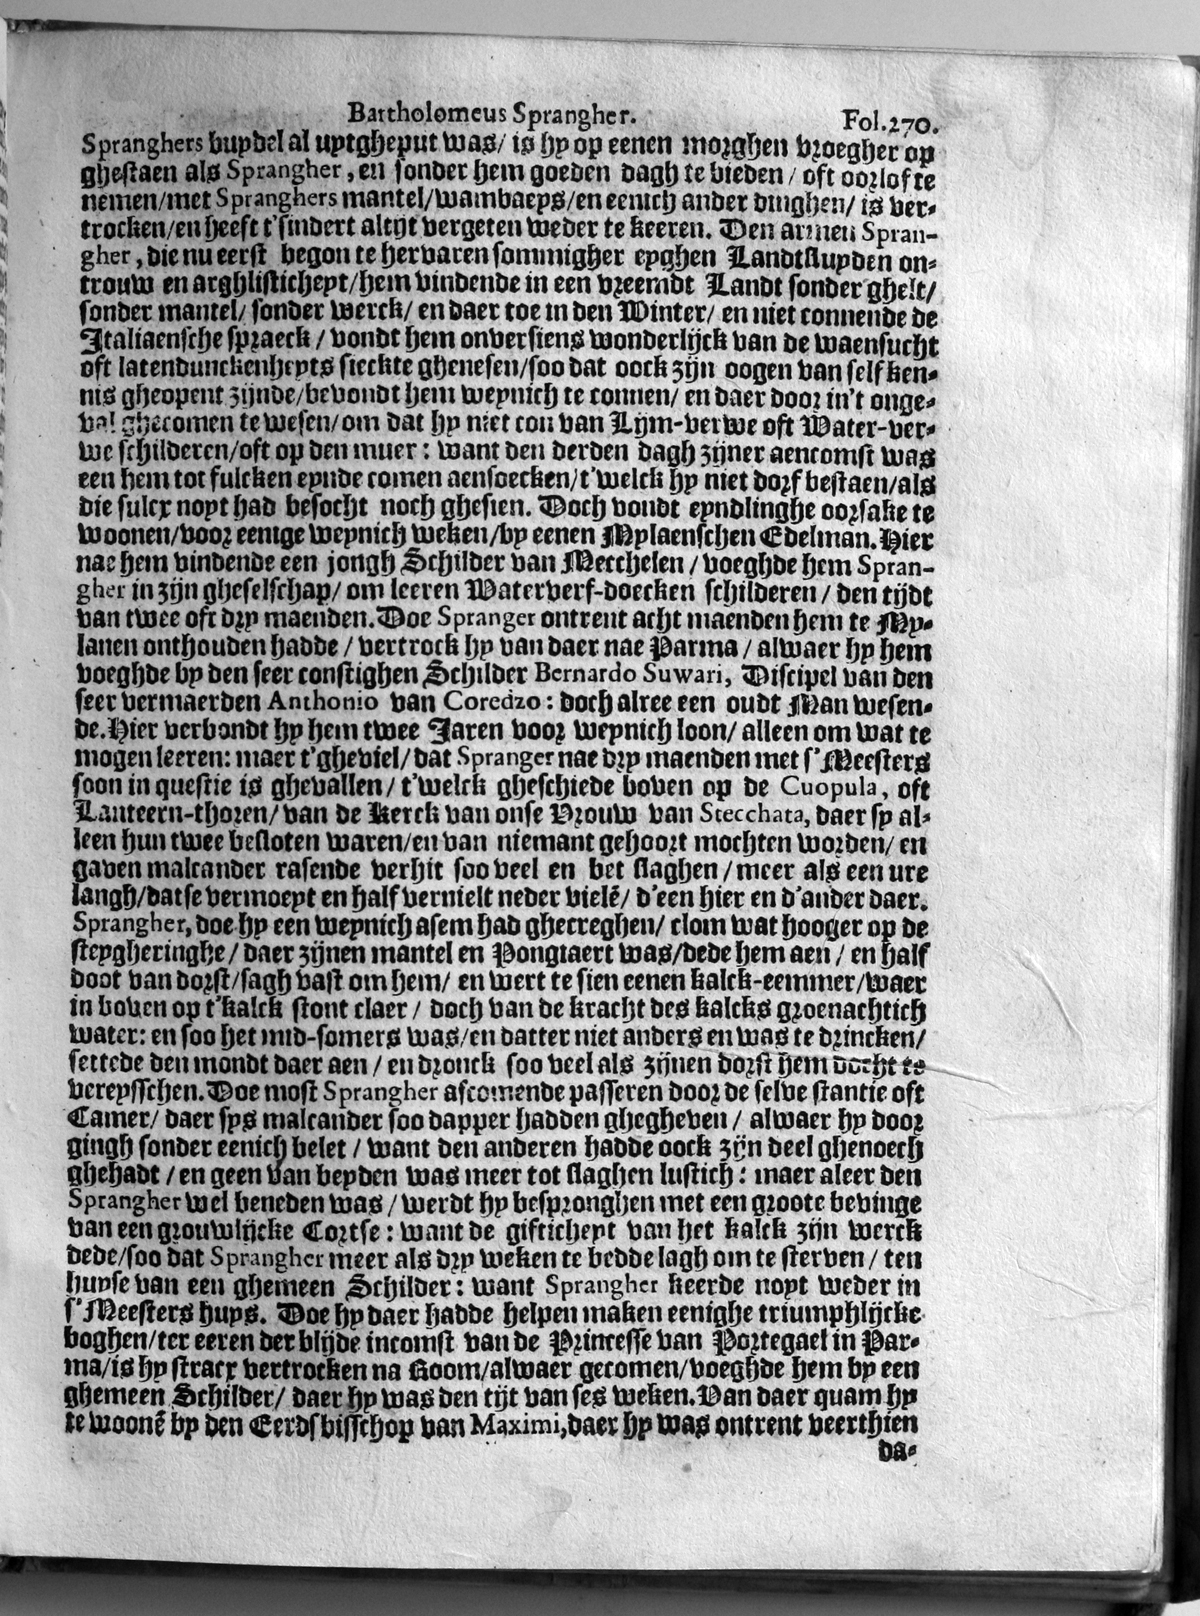 Bartholomeus Sprangher. Fol.270.
Spranghers buydel al uytgheput was/ is hy op eenen morghen vroegher op
ghestaen als Sprangher, en sonder hem goeden dagh te bieden / oft oorlof te
nemen/met Spranghers mantel/wambaeys/en eenich ander dinghen/ is ver-
trocken/en heeft t'sindert altijt vergeten weder te keeren. Den armen Spran-
gher, die nu eerst begon te hervaren sommigher eyghen Landtsluyden on-
trouw en arghlisticheyt/hem vindende in een vreemdt Landt sonder ghelt/
sonder mantel/ sonder werck/ en daer toe in den Winter/ en niet connende de
Italiaensche spraeck / vondt hem onversiens wonderlijck van de waensucht
oft latendunckenheyts sieckte ghenesen/soo dat oock zijn oogen van self ken-
nis gheopent zijnde/bevondt hem weynich te connen/ en daer door in't onge-
val ghecomen te wesen/om dat hy niet con van Lijm-verwe oft Water-ver-
we schilderen/oft op den muer : want den derden dagh zijner aencomst was
een hem tot sulcken eynde comen aensoecken/t'welck hy niet dorf bestaen/als
die sulcx noyt had besocht noch ghesien. Doch vondt eyndlinghe oorsake te
woonen/voor eenige weynich weken/by eenen Mylaenschen Edelman. Hier
nae hem vindende een jongh Schilder van Mecchelen / voeghde hem Spran-
gher in zijn gheselschap/ om leeren Waterverf-doecken schilderen / den tijdt
van twee oft dry maenden. Doe Spranger ontrent acht maenden hem te My-
lanen onthouden hadde / vertrock hy van daer nae Parma / alwaer hy hem
voeghde by den seer constighen Schilder Bernardo Suwari, Discipel van den
seer vermaerden Anthonio van Coredzo : doch alree een oudt Man wesen-
de. Hier verbondt hy hem twee Jaren voor weynich loon/ alleen om wat te
mogen leeren: maer t'gheviel/ dat Spranger nae dry maenden met s'Meesters
soon in questie is ghevallen / t'welck gheschiede boven op de Cuopula, oft
Lanteern-thoren/ van de Kerck van onse Vrouw van Stecchata, daer sy al-
leen hun twee besloten waren/en van niemant gehoort mochten worden/ en
gaven malcander rasende verhit soo veel en bet slaghen / meer als een ure
langh/datse vermoeyt en half vernielt neder vielē/ d'een hier en d'ander daer.
Sprangher, doe hy een weynich asem had ghecreghen/ clom wat hooger op de
steygheringhe / daer zijnen mantel en Pongiaert was/dede hem aen / en half
doot van dorst/sagh vast om hem/ en wert te sien eenen kalck-eemmer/waer
in boven op t'kalck stont claer / doch van de kracht des kalcks groenachtich
water: en soo het mid-somers was/en datter niet anders en was te drincken/
settede den mondt daer aen / en dronck soo veel als zijnen dorst hem docht te
vereysschen. Doe most Sprangher afcomende passeren door de selve stantie oft
Camer/ daer sys malcander soo dapper hadden ghegheven / alwaer hy door
gingh sonder eenich belet / want den anderen hadde oock zijn deel ghenoech
ghehadt / en geen van beyden was meer tot slaghen lustich : maer aleer den
Sprangher wel beneden was / werdt hy bespronghen met een groote bevinge
van een grouwlijcke Cortse : want de gifticheyt van het kalck zijn werck
dede/soo dat Sprangher meer als dry weken te bedde lagh om te sterven / ten
huyse van een ghemeen Schilder : want Sprangher keerde noyt weder in
s'Meesters huys. Doe hy daer hadde helpen maken eenighe triumphlijcke
boghen/ter eeren der blijde incomst van de Princesse van Portegael in Par-
ma/is hy stracx vertrocken na Room/alwaer gecomen/voeghde hem by een
ghemeen Schilder/ daer hy was den tijt van ses weken. Van daer quam hy
te woonē by den Eerdsbisschop van Maximi, daer hy was ontrent veerthien
da-